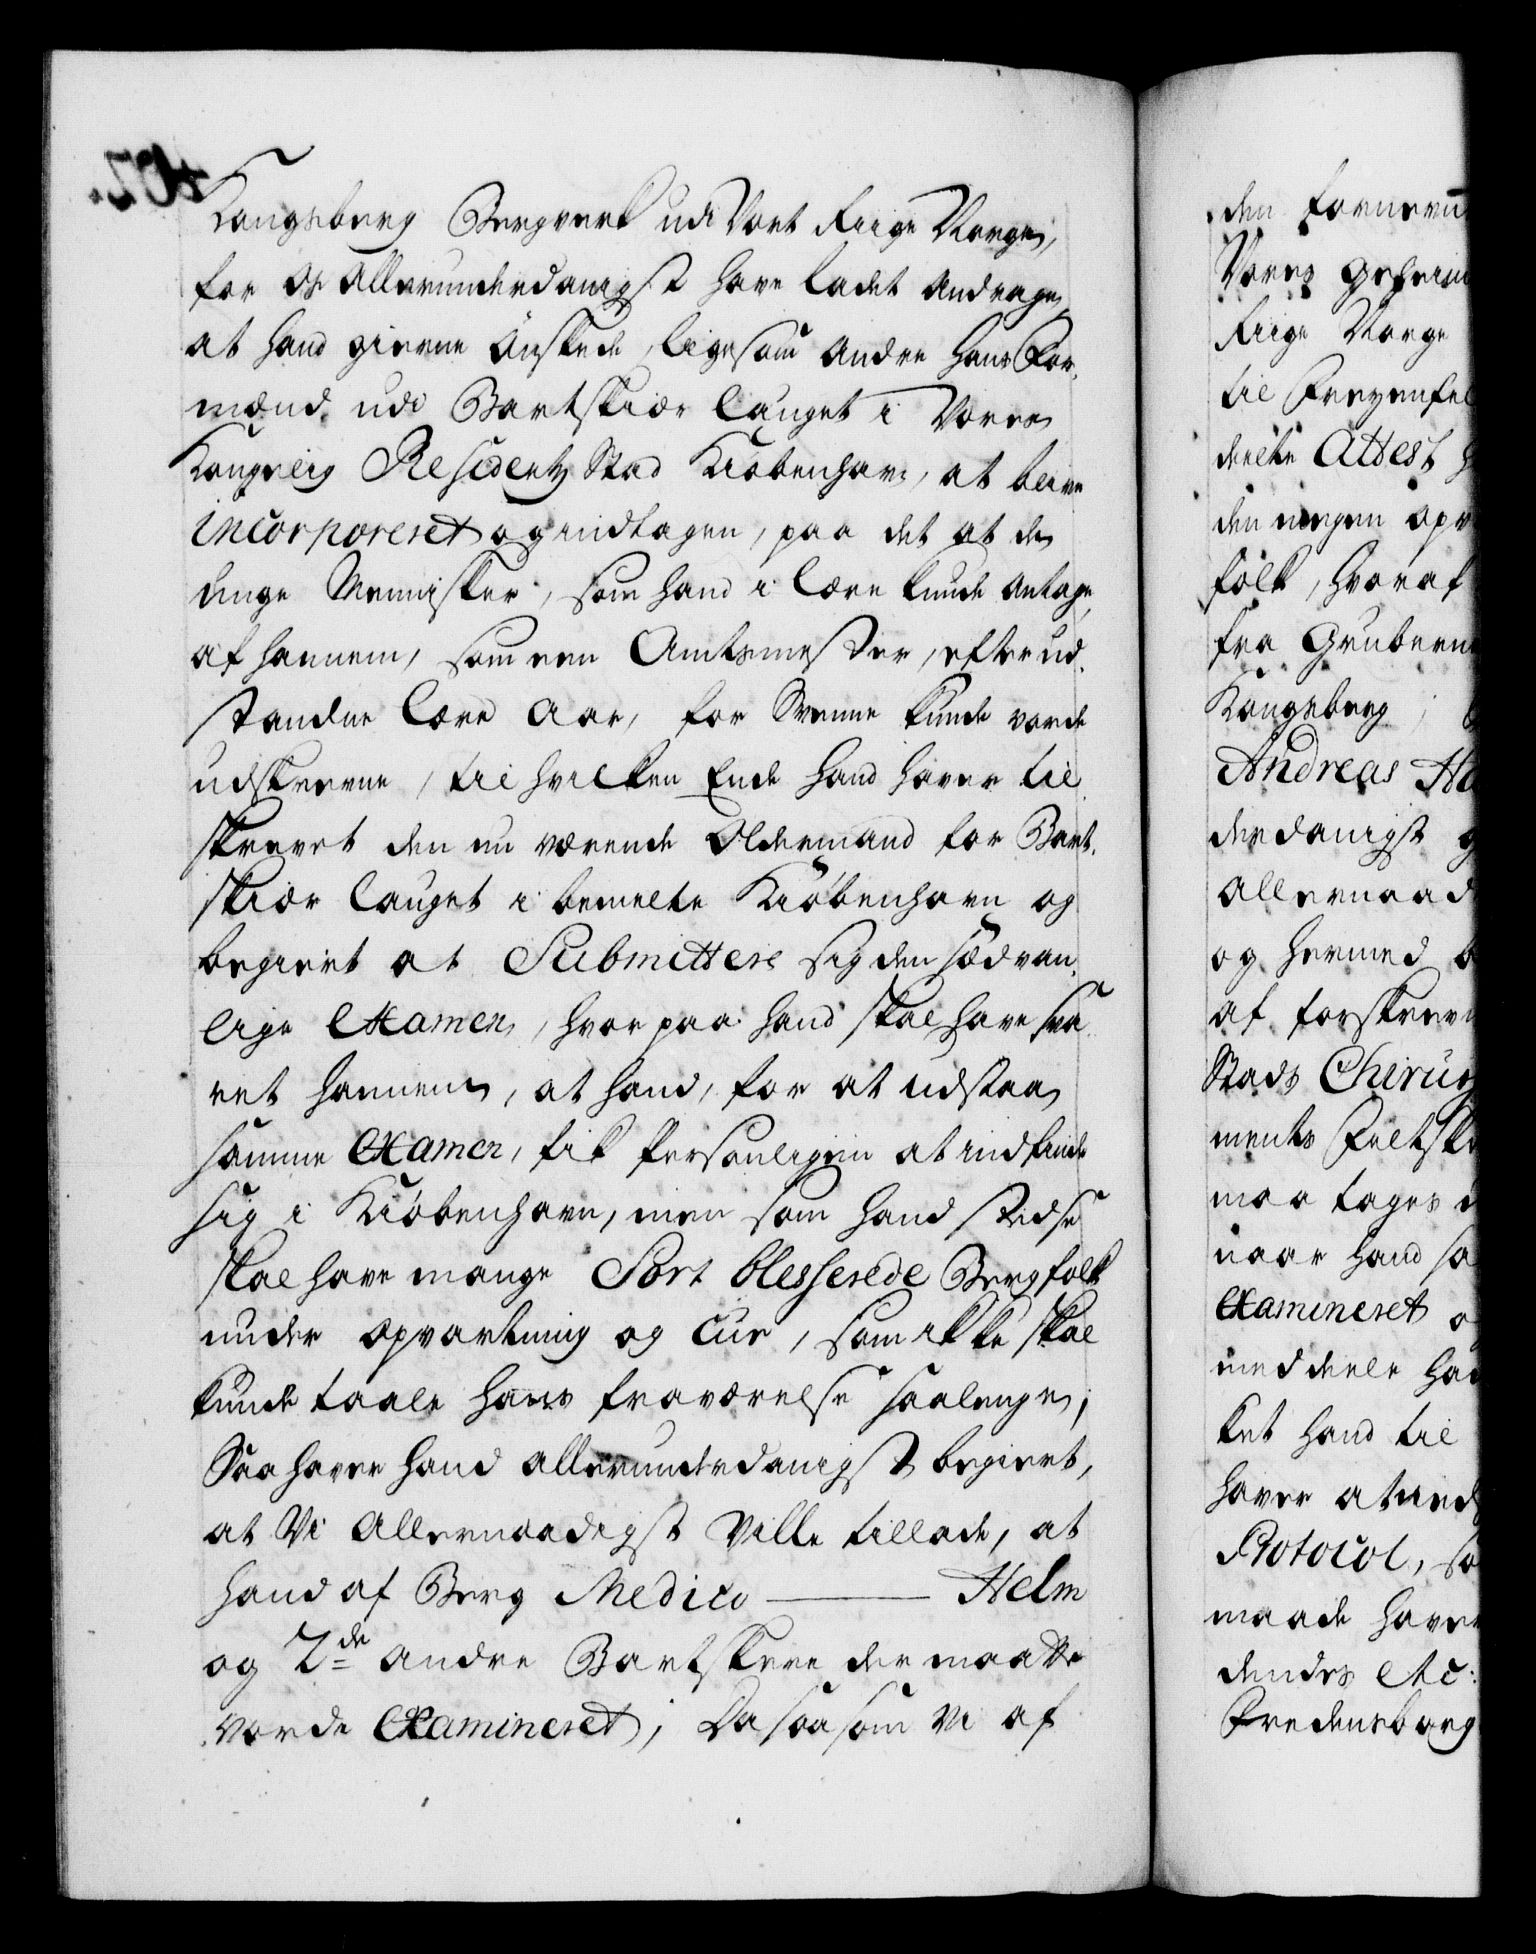 Kongsberg Bergverk udi Vort Riige Norge,
for Os allerunderdanigst have ladet andrage,
at hand gierne ønskede, ligesom andre hans For,
mænd udi Bartskiær lauget i Vores
Kongelig Residentz Stad Kiøbenhavn, at blive
incorporeret og indtagen, paa det at de
unge Mennisker, som hand i lære kunde antage,
af hannem, som een Amtsmester, efter ud,
standne lære aar, for Svenne kunde vorde
udskrevne, til hvilken Ende hand haver til
skrevet den nu værende Oldermand for Bart,
skiær lauget i bemelte Kiøbenhavn og
begiert at Submittere sig den sædvan,
lige Examen, hvor paa hand skal have sva
ret hannem, at hand, for at udstaa
samme Examen, fik Personligen at indfinde
sig i Kiøbenhavn, men som hand stedse
skal have mange Sort blesserede Bergfolk
under opvartning og Cur, som ikke skal
kunde taale hans fraværelse saalenge;
Saa haver hand allerunderdanigst begiert,
at Vi allernaadigst ville tillade, at
hand af Berg Medico ——— Helm
og 2de andre Bartskere der maatte
vorde Examineret; Da saasom Vi af
den fornevn
Vores Geheim
Riige Norge
til Freyenfel
deelte Attest
den megen opv
folk, hvoraf
fra Gruberne
Kongsberg,
Andreas
derdanigst
allernaad
og hermed
af forskrevn
Stads Chirurg
ments Feltske
maa tages
naar hand
Examineret
meddeele
ket hand til
haver at ind
Protocol,
maade haver
dendes etc:
Fredensborg